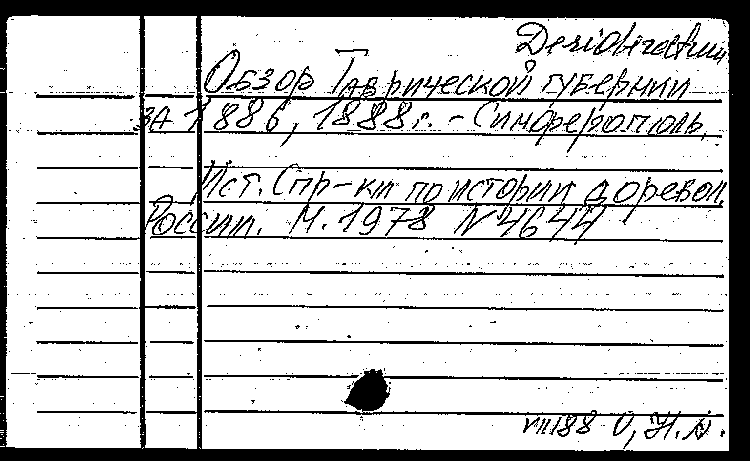 Desideratum
Обзор Таврической губернии
за 1886, 1888 г. - Симферополь.
Ист. Спр-ки по истории доревол.
России. М. 1978 N 4644
VIII 88 О, Н. А.